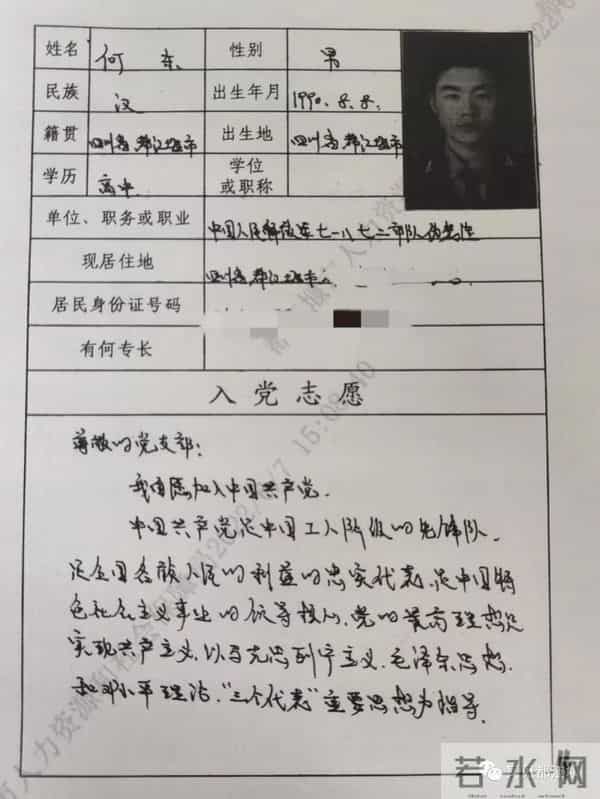 姓名 何东 性别 男
民族 汉 出生年月 1990.8.8.
籍贯 四川省都江堰市 出生地 四川省都江堰市
学历 高中 学位
或职称
单位、职务或职业 中国人民解放军七一八七二部队
现居住地 四川省都江堰市
居民身份证号码
有何专长
入党志愿
尊敬的党支部:
我自愿加入中国共产党.
中国共产党是中国工人阶级的先锋队.
是全国各族人民的利益的忠实代表.是中国特
色社会主义事业的领导核心,党的最高理想是
实现共产主义,以马克思列宁主义.毛泽东思想.
和邓小平理论."三个代表"重要思想为指导.
若水网